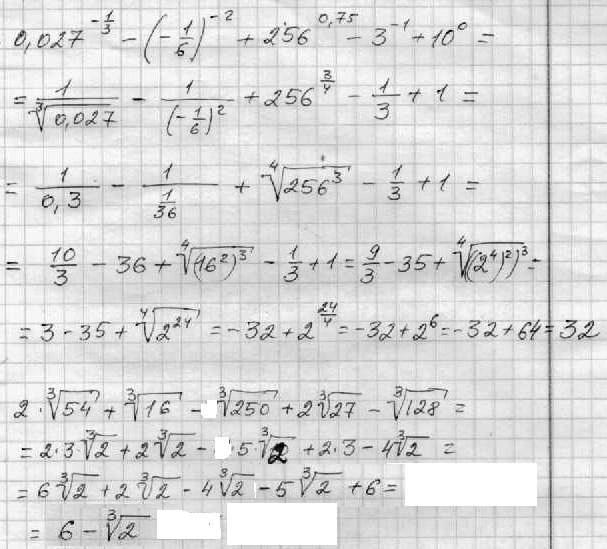 0,027^{-1/3} - (-1/6)^{-2} + 256^{0,75} - 3^{-1} + 10^0 =
= 1/∛0,027 - 1/(-1/6)^2 + 256^{3/4} - 1/3 + 1 =
= 1/0,3 - 1/(1/36) + ∜(256^3) - 1/3 + 1 =
= 10/3 - 36 + ∜((16^2)^3) - 1/3 + 1 = 9/3 - 35 + ∜(((2^4)^2)^3) =
= 3 - 35 + ∜(2^{24}) = -32 + 2^{24/4} = -32 + 2^6 = -32 + 64 = 32
2·∛54 + ∛16 - ∛250 + 2∛27 - ∛128 =
= 2·3·∛2 + 2∛2 - 5·∛2 + 2·3 - 4∛2 =
= 6∛2 + 2∛2 - 4∛2 - 5∛2 + 6 =
= 6 - ∛2